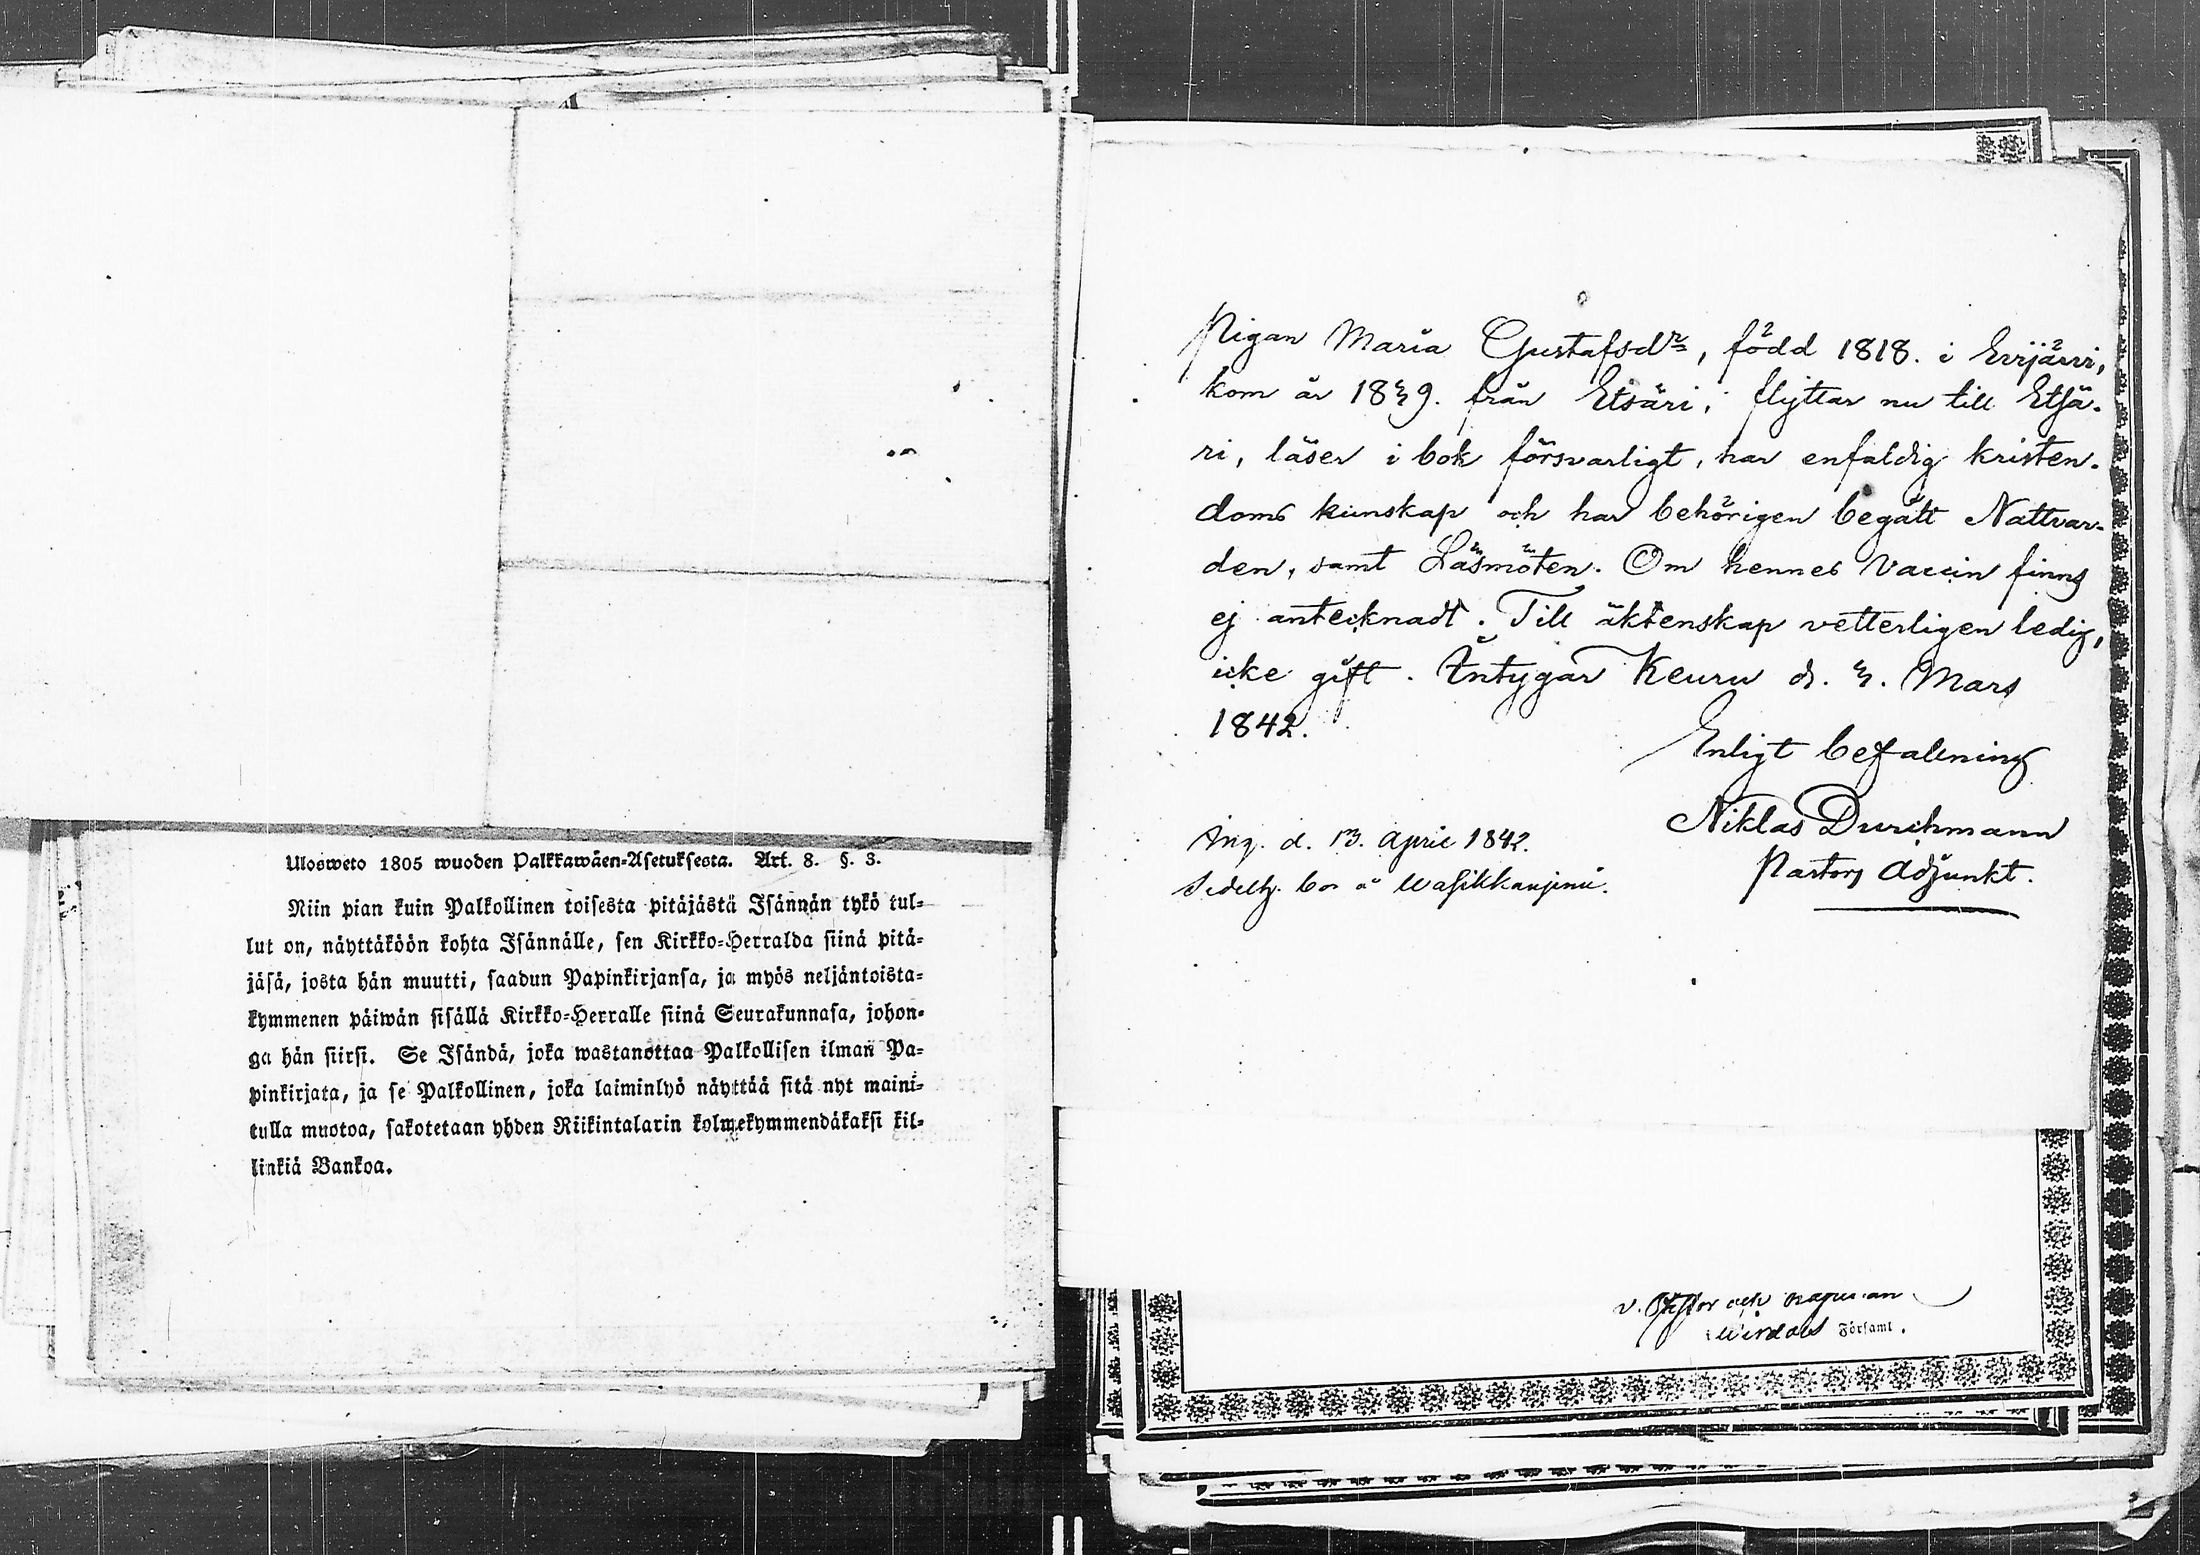 Ulosweto 1805 wuoden Palkkawäen-Asetuksesta. Art. 8. §. 3.
Niin pian kuin Palkollinen toisesta pitäjästä Isännän tykö tul-
lut on, näyttäköön kohta Isännälle, sen Kirkko-Herralda siinä pitä-
jäsä, josta hän muutti, saadun Papinkirjansa, ja myös neljäntoista-
kymmenen päiwän sisällä Kirkko-Herralle siinä Seurakunnasa, johon-
ga hän siirsi. Se Isändä, joka wastanottaa Palkollisen ilman Pa-
pinkirjata, ja se Palkollinen, joka laiminlyö näyttää sitä nyt maini-
tulla muotoa, sakotetaan yhden Riikintalarin kolmekymmendäkaksi kil-
linkiä Bankoa.
Pigan Maria Gustafsdr, född 1818. i Evijärvi,
kom år 1839. från Etsäri, flyttar nu till Etsä-
ri, läser i bok försvarligt, har enfaldig kristen-
doms kunskap och har behörigen begått Nattvar-
den, samt Läsmöten. Om hennes Vaccin finns
ej antecknadt. Till äktenskap vetterligen ledig,
icke gift. Intygar Keuru d. 3. Mars
1842.
Enligt befallning
Niklas Durchmann
Pastors Adjunkt.
Ing. d. 13. April 1842.
v. Pastor och Kapellan
i Wirdois Församl.